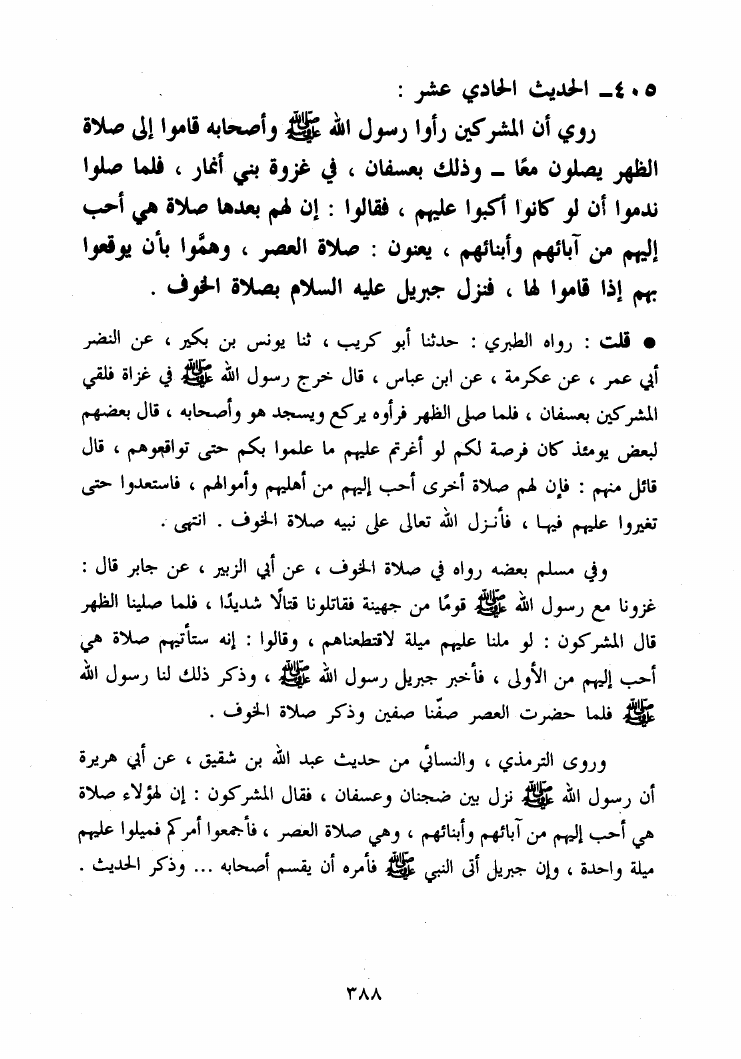 ٤٠٥ـ الحديث الحادي عشر :
روي أن المشركين رأوا رسول الله ﷺ وأصحابه قاموا إلى صلاة
الظهر يصلون معًا ـ وذلك بعسفان ، في غزوة بني أنمار ، فلما صلوا
ندموا أن لو كانوا أكبوا عليهم ، فقالوا : إن لهم بعدها صلاة هي أحب
إليهم من آبائهم وأبنائهم ، يعنون : صلاة العصر ، وهمُّوا بأن يوقعوا
بهم إذا قاموا لها ، فنزل جبريل عليه السلام بصلاة الخوف .
● قلت : رواه الطبري : حدثنا أبو كريب ، ثنا يونس بن بكير ، عن النضر
أبي عمر ، عن عكرمة ، عن ابن عباس ، قال خرج رسول الله ﷺ في غزاة فلقي
المشركين بعسفان ، فلما صلى الظهر فرأوه يركع ويسجد هو وأصحابه ، قال بعضهم
لبعض يومئذ كان فرصة لكم لو أغرتم عليهم ما علموا بكم حتى تواقعوهم ، قال
قائل منهم : فإن لهم صلاة أخرى أحب إليهم من أهليهم وأموالهم ، فاستعدوا حتى
تغيروا عليهم فيها ، فأنـزل الله تعالى على نبيه صلاة الخوف . انتهى .
وفي مسلم بعضه رواه في صلاة الخوف ، عن أبي الزبير ، عن جابر قال :
غزونا مع رسول الله ﷺ قومًا من جهينة فقاتلونا قتالًا شديدًا ، فلما صلينا الظهر
قال المشركون : لو ملنا عليهم ميلة لاقتطعناهم ، وقالوا : إنه ستأتيهم صلاة هي
أحب إليهم من الأولى ، فأخبر جبريل رسول الله ﷺ ، وذكر ذلك لنا رسول الله
ﷺ فلما حضرت العصر صفّنا صفين وذكر صلاة الخوف .
وروى الترمذي ، والنسائي من حديث عبد الله بن شقيق ، عن أبي هريرة
أن رسول الله ﷺ نزل بين ضجنان وعسفان ، فقال المشركون : إن لهؤلاء صلاة
هي أحب إليهم من آبائهم وأبنائهم ، وهي صلاة العصر ، فأجمعوا أمركم فميلوا عليهم
ميلة واحدة ، وإن جبريل أتى النبي ﷺ فأمره أن يقسم أصحابه ... وذكر الحديث .
٣٨٨